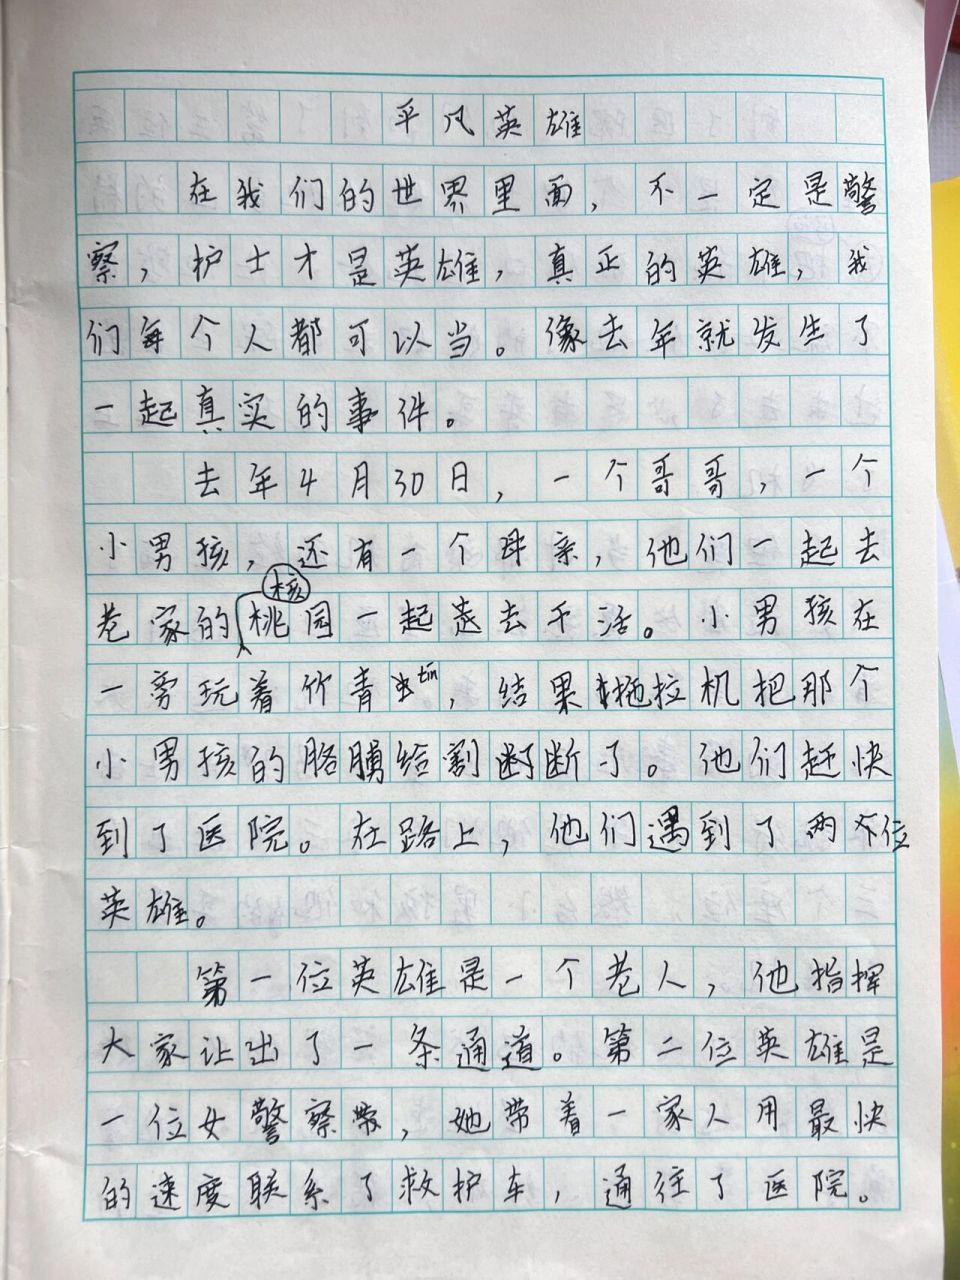 平凡英雄
在我们的世界里面，不一定是警
察，护士才是英雄，真正的英雄，我
们每个人都可以当。像去年就发生了
一起真实的事件。
去年4月30日，一个哥哥，一个
小男孩，还有一个母亲，他们一起去
老家的核桃园一起去干活。小男孩在
一旁玩着竹蜻tin，结果拖拉机把那个
小男孩的胳膊给割断了。他们赶快
到了医院。在路上，他们遇到了两位
英雄。
第一位英雄是一个老人，他指挥
大家让出了一条通道。第二位英雄是
一位女警察，她带着一家人用最快
的速度联系了救护车，通往了医院。